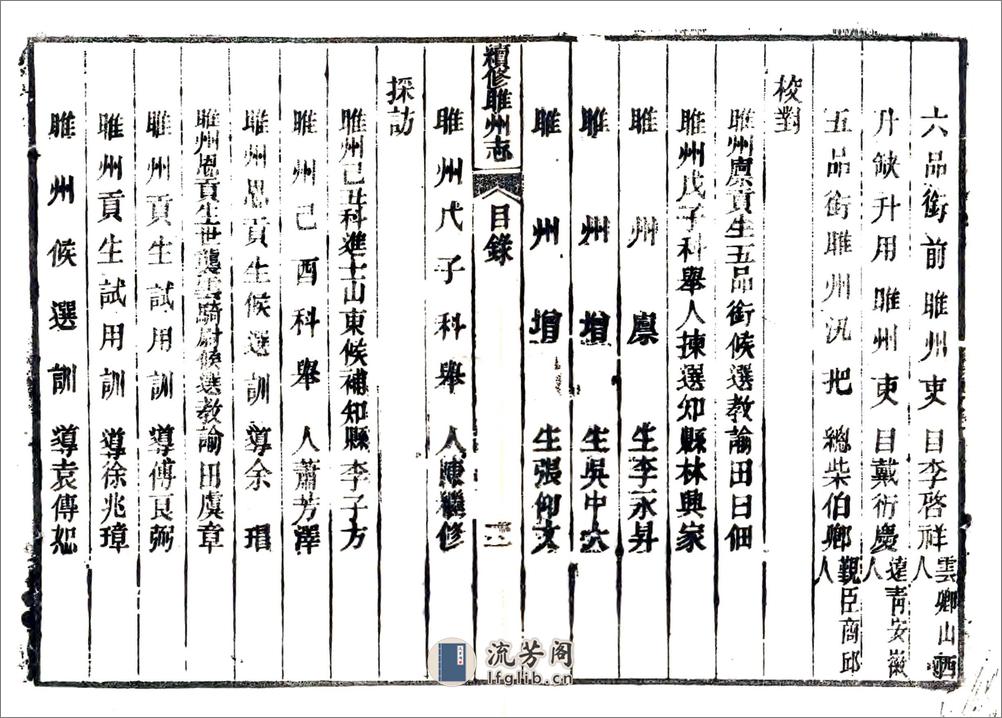 六品銜前睢州吏目李啓祥雲卿山西人
升缺升用睢州吏目戴衍慶達青安徽人
五品銜睢州汛把總柴伯卿覲臣商邱人
校對
睢州廪貢生五品銜候選教諭田日佃
睢州戊子科舉人揀選知縣林興家
睢州廪生李永昇
睢州增生吳中
睢州增生張仰文
續修睢州志
目錄
睢州戊子科舉人陳繼修
採訪
睢州己丑科進士山東候補知縣李子方
睢州己酉科舉人蕭芳澤
睢州恩貢生候選訓導余瑁
睢州恩貢生世襲雲騎尉候選教諭田虞章
睢州貢生試用訓導傅良弼
睢州貢生試用訓導徐兆璋
睢州候選訓導袁傳恕
流芳阁
lfglib.cn